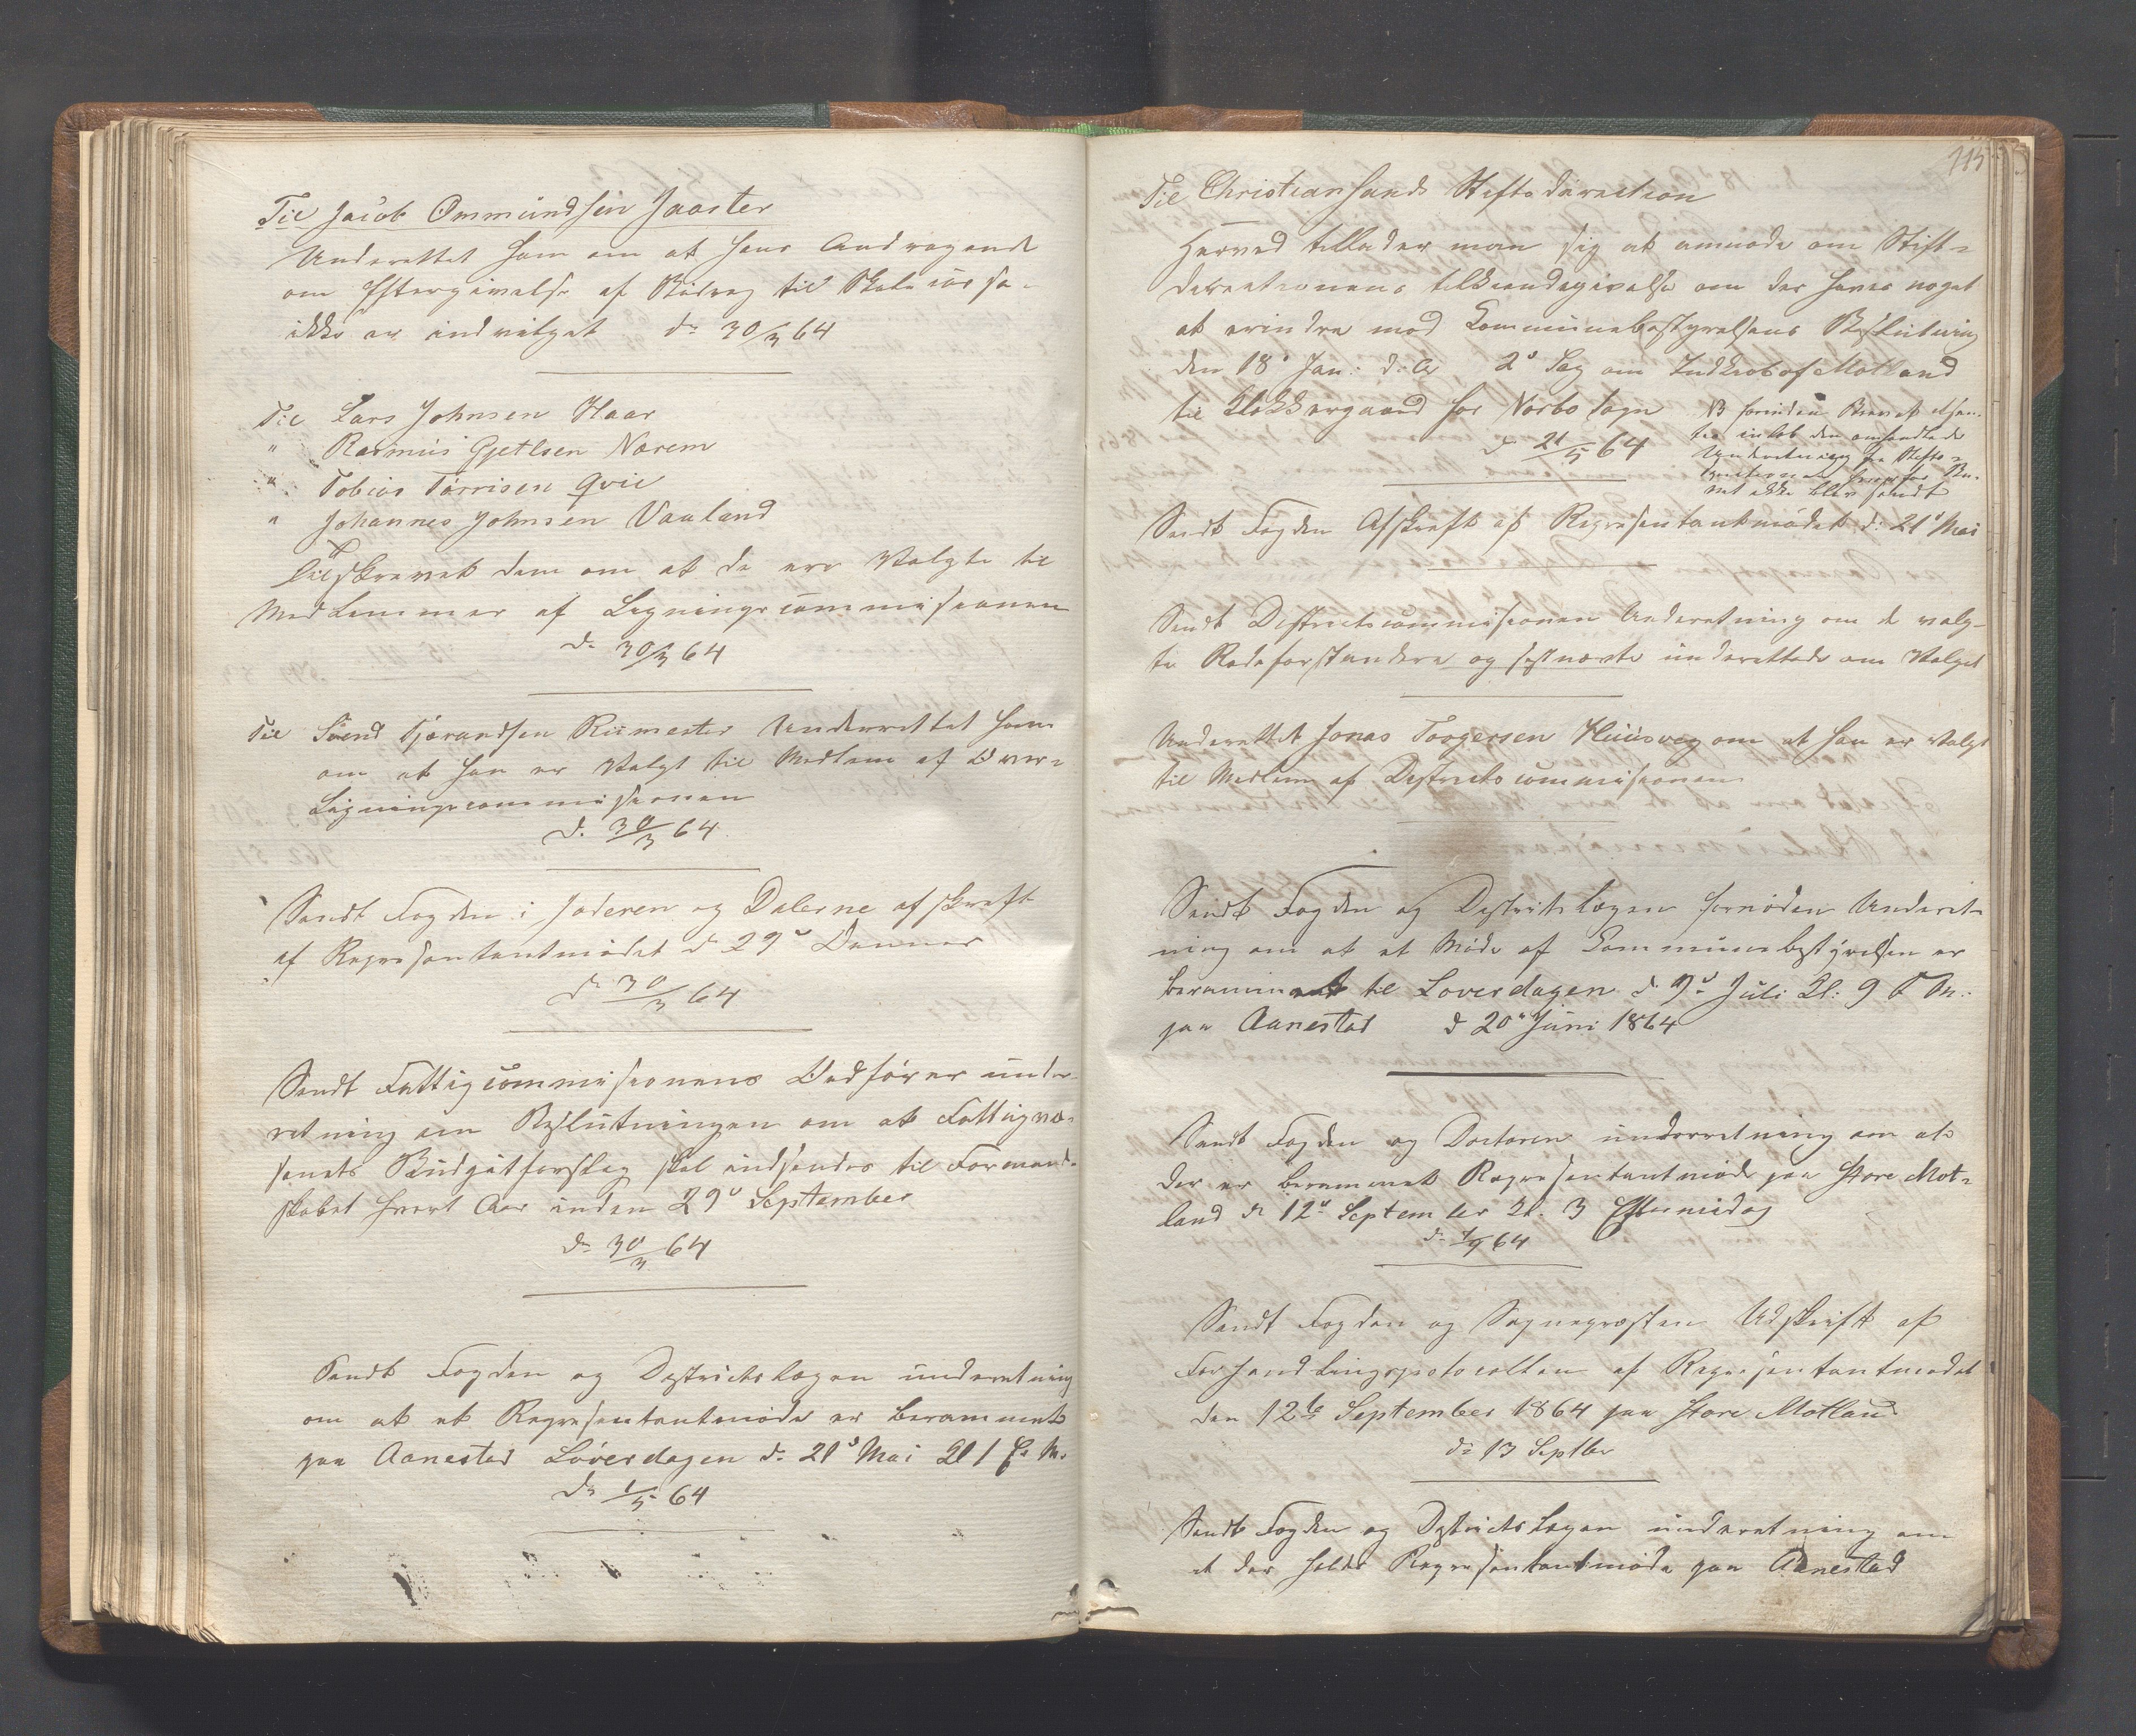 Til Jacob Ommundsen Jaaster
Underettet ham om at hans Andragende
om Eftergivelse af Bidrag til Skolecassa
ikke er indvilget d: 30/3 64
Til Lars Johnsen Haar
" Rasmus Gjetlsen Nærem
" Tobias Tørrisen Qvie
" Johannes Johnsen Vaaland
Tilskrevet dem om at de ere Valgte til
Medlemmer af Ligningscommissionen
d: 30/3 64
Til Svend Tjærandsen Riimester Underrettet ham
om at han er Valgt til Medlem af Over-
Ligningscommissionen
d. 30/3 64
Sendt Fogden i Jæderen og Dalerne afskrift
af Repræsentantmødet d 29de Dennes
d: 30/3 64
Sendt Fattigcommissionens Ordfører under-
retning om Beslutningen om at Fattigvæ-
senets Budgetforslag skal indsendes til Formand-
skabet hvert Aar inden 29de September
d: 30/3 64
Sendt Fogden og Districtslægen underetning
om at et Repræsentantmøde er berammet
paa Aanestad Løverdagen d: 21de Mai Kl 1 E. M.
d: 1/5 64
115
Til Christiansands Stiftsdirection
Herved tillader man sig at anmode om Stift-
directionens tilkiendegivelse om der haves noget
at erindre mod Communebestyrelsens Beslutning
den 18de Jan: d: A 2de Sag om Indkiøb af Motland
til Klokkergaard for Nærbø Sogn
d 21/5 64
NB forinden Brevet afsen-
tes indløb den omhandlede
Underetning fra Stifts-
directionen hvorfor Bre-
vet ikke blev sendt
Sendt Fogden Afskrift af Repræsentantmødet d: 21de Mai
Sendt Districtscommissionen Underetning om de valg-
te Rodeforstandere og sidstnævnte underettede om Valget
Underettet Jonas Taagersen Huusveg om at han er valgt
til Medlem af Districtscommissionen
Sendt Fogden og Districtslægen fornøden Underet-
ning om at et Møde af Communebestyrelsen er
berammet til Løverdagen d 9de Juli Kl: 9 F M.
paa Aanestad d 20de Juni 1864
Sendt Fogden og Doctoren underretning om at
der er berammet Repræsentantmøde paa Store Mot-
land d 12de September Kl. 3 Eftermidag
d: 1/9 64
Sendt Fogden og Sognepræsten Udskrift af
Forhandlingsprotocollen af Repræsentantmødet
den 12te September 1864 paa Store Motland
d: 13 Septbr
Sendt Fogden og Districtslægen underetning om
at der holdes Repræsentantmøde paa Aanestad